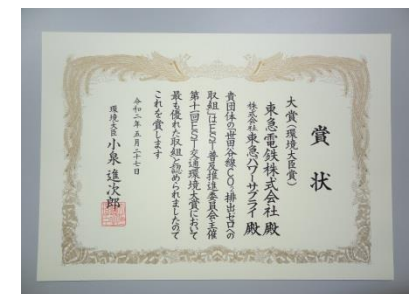 賞状
大賞(環境大臣賞)
東急電鉄株式会社 殿
株式会社東急パワーサプライ 殿
貴団体の「世田谷線CO₂排出ゼロへの
取組」はEST普及推進委員会主催
第十一回EST交通環境大賞において
最も優れた取組と認められましたので
これを賞します
令和二年五月二十七日
環境大臣 小泉進次郎